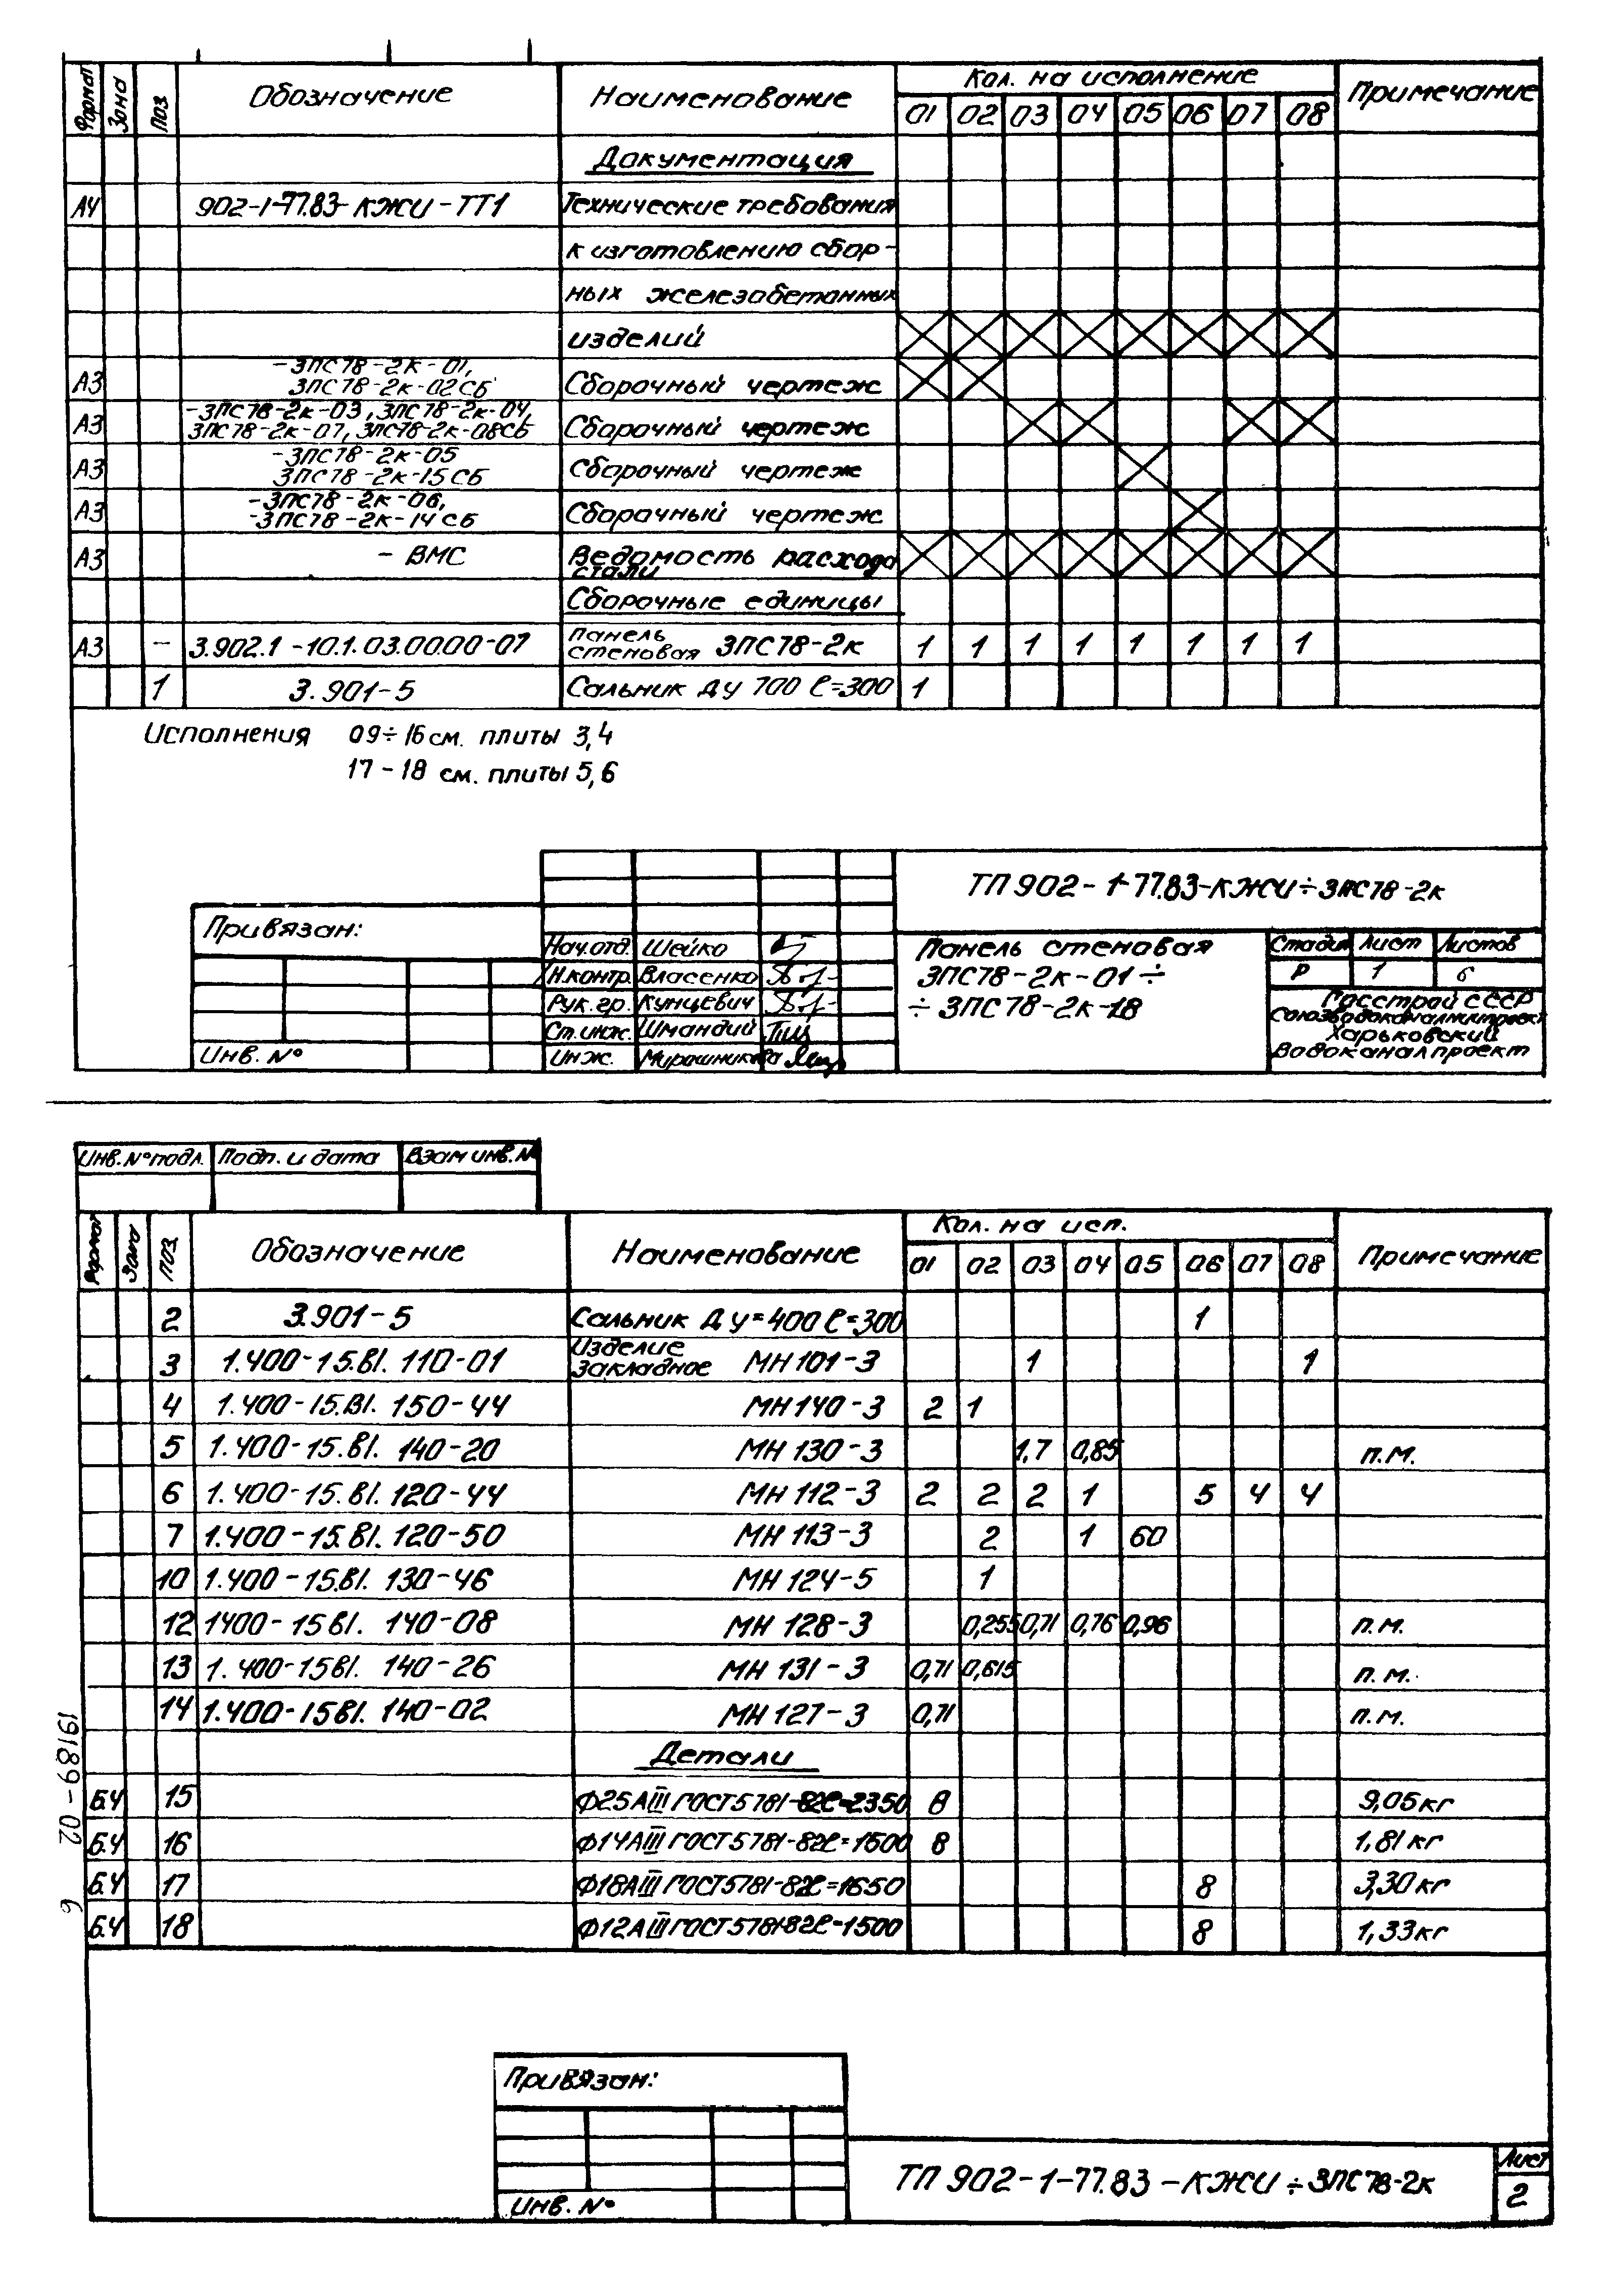 Формат Зона Поз Обозначение Наименование Кол. на исполнение Примечание
01 02 03 04 05 06 07 08
Документация
А4 902-1-77.83-КЖИ-ТТ1 Технические требования
к изготовлению сбор-
ных железобетонных
изделий
А3 -3ПС78-2К-01, 3ПС78-2к-02СБ Сборочный чертеж
А3 -3ПС78-2к-03, 3ПС78-2к-04, 3ПС78-2к-07, 3ПС78-2к-08СБ Сборочный чертеж
А3 -3ПС78-2к-05 3ПС78-2к-15СБ Сборочный чертеж
А3 -3ПС78-2к-06, -3ПС78-2к-14СБ Сборочный чертеж
А3 - ВМС Ведомость расхода стали
Сборочные единицы
А3 - 3.902.1-10.1.03.0000-07 Панель стеновая 3ПС78-2к 1 1 1 1 1 1 1 1
1 3.901-5 Сальник Ду 700 ℓ=300 1
Исполнения 09÷16 см. плиты 3,4
17-18 см. плиты 5,6
ТП 902-1-77.83-КЖИ÷3ПС78-2к
Привязан:
Инв. №
Нач.отд. Шейко
Н.контр. Власенко
Рук.гр. Кунцевич
Ст.инж. Шмандий
Инж. Мирошникова
Панель стеновая
3ПС78-2к-01÷
÷3ПС78-2к-18
Стадия Лист Листов
Р 1 6
Госстрой СССР
Союзводоканалниипроект
Харьковский
Водоканалпроект
Инв.№ подл. Подп. и дата Взам инв.№
Формат Зона Поз. Обозначение Наименование Кол. на исп. Примечание
01 02 03 04 05 06 07 08
2 3.901-5 Сальник Ду=400 ℓ=300 1
3 1.400-15.В1. 110-01 Изделие закладное МН 101-3 1 1
4 1.400-15.В1. 150-44 МН 140-3 2 1
5 1.400-15.В1. 140-20 МН 130-3 1,7 0,85 п.м.
6 1.400-15.В1. 120-44 МН 112-3 2 2 2 1 5 4 4
7 1.400-15.В1. 120-50 МН 113-3 2 1 60
10 1.400-15.В1. 130-46 МН 124-5 1
12 1400-15В1. 140-08 МН 128-3 0,255 0,71 0,76 0,96 п.м.
13 1.400-15В1. 140-26 МН 131-3 0,71 0,615 п.м.
14 1.400-15В1. 140-02 МН 127-3 0,71 п.м.
Детали
Б.Ч 15 Ф25АIII ГОСТ5781-82ℓ=2350 8 9,05кг
Б.Ч 16 Ф14АIII ГОСТ5781-82ℓ=1500 8 1,81кг
Б.Ч 17 Ф18АIII ГОСТ5781-82ℓ=1650 8 3,30кг
Б.Ч 18 Ф12АIII ГОСТ5781-82ℓ=1500 8 1,33кг
19189-02 6
Привязан:
Инв. №
ТП 902-1-77.83-КЖИ÷3ПС78-2к
Лист
2